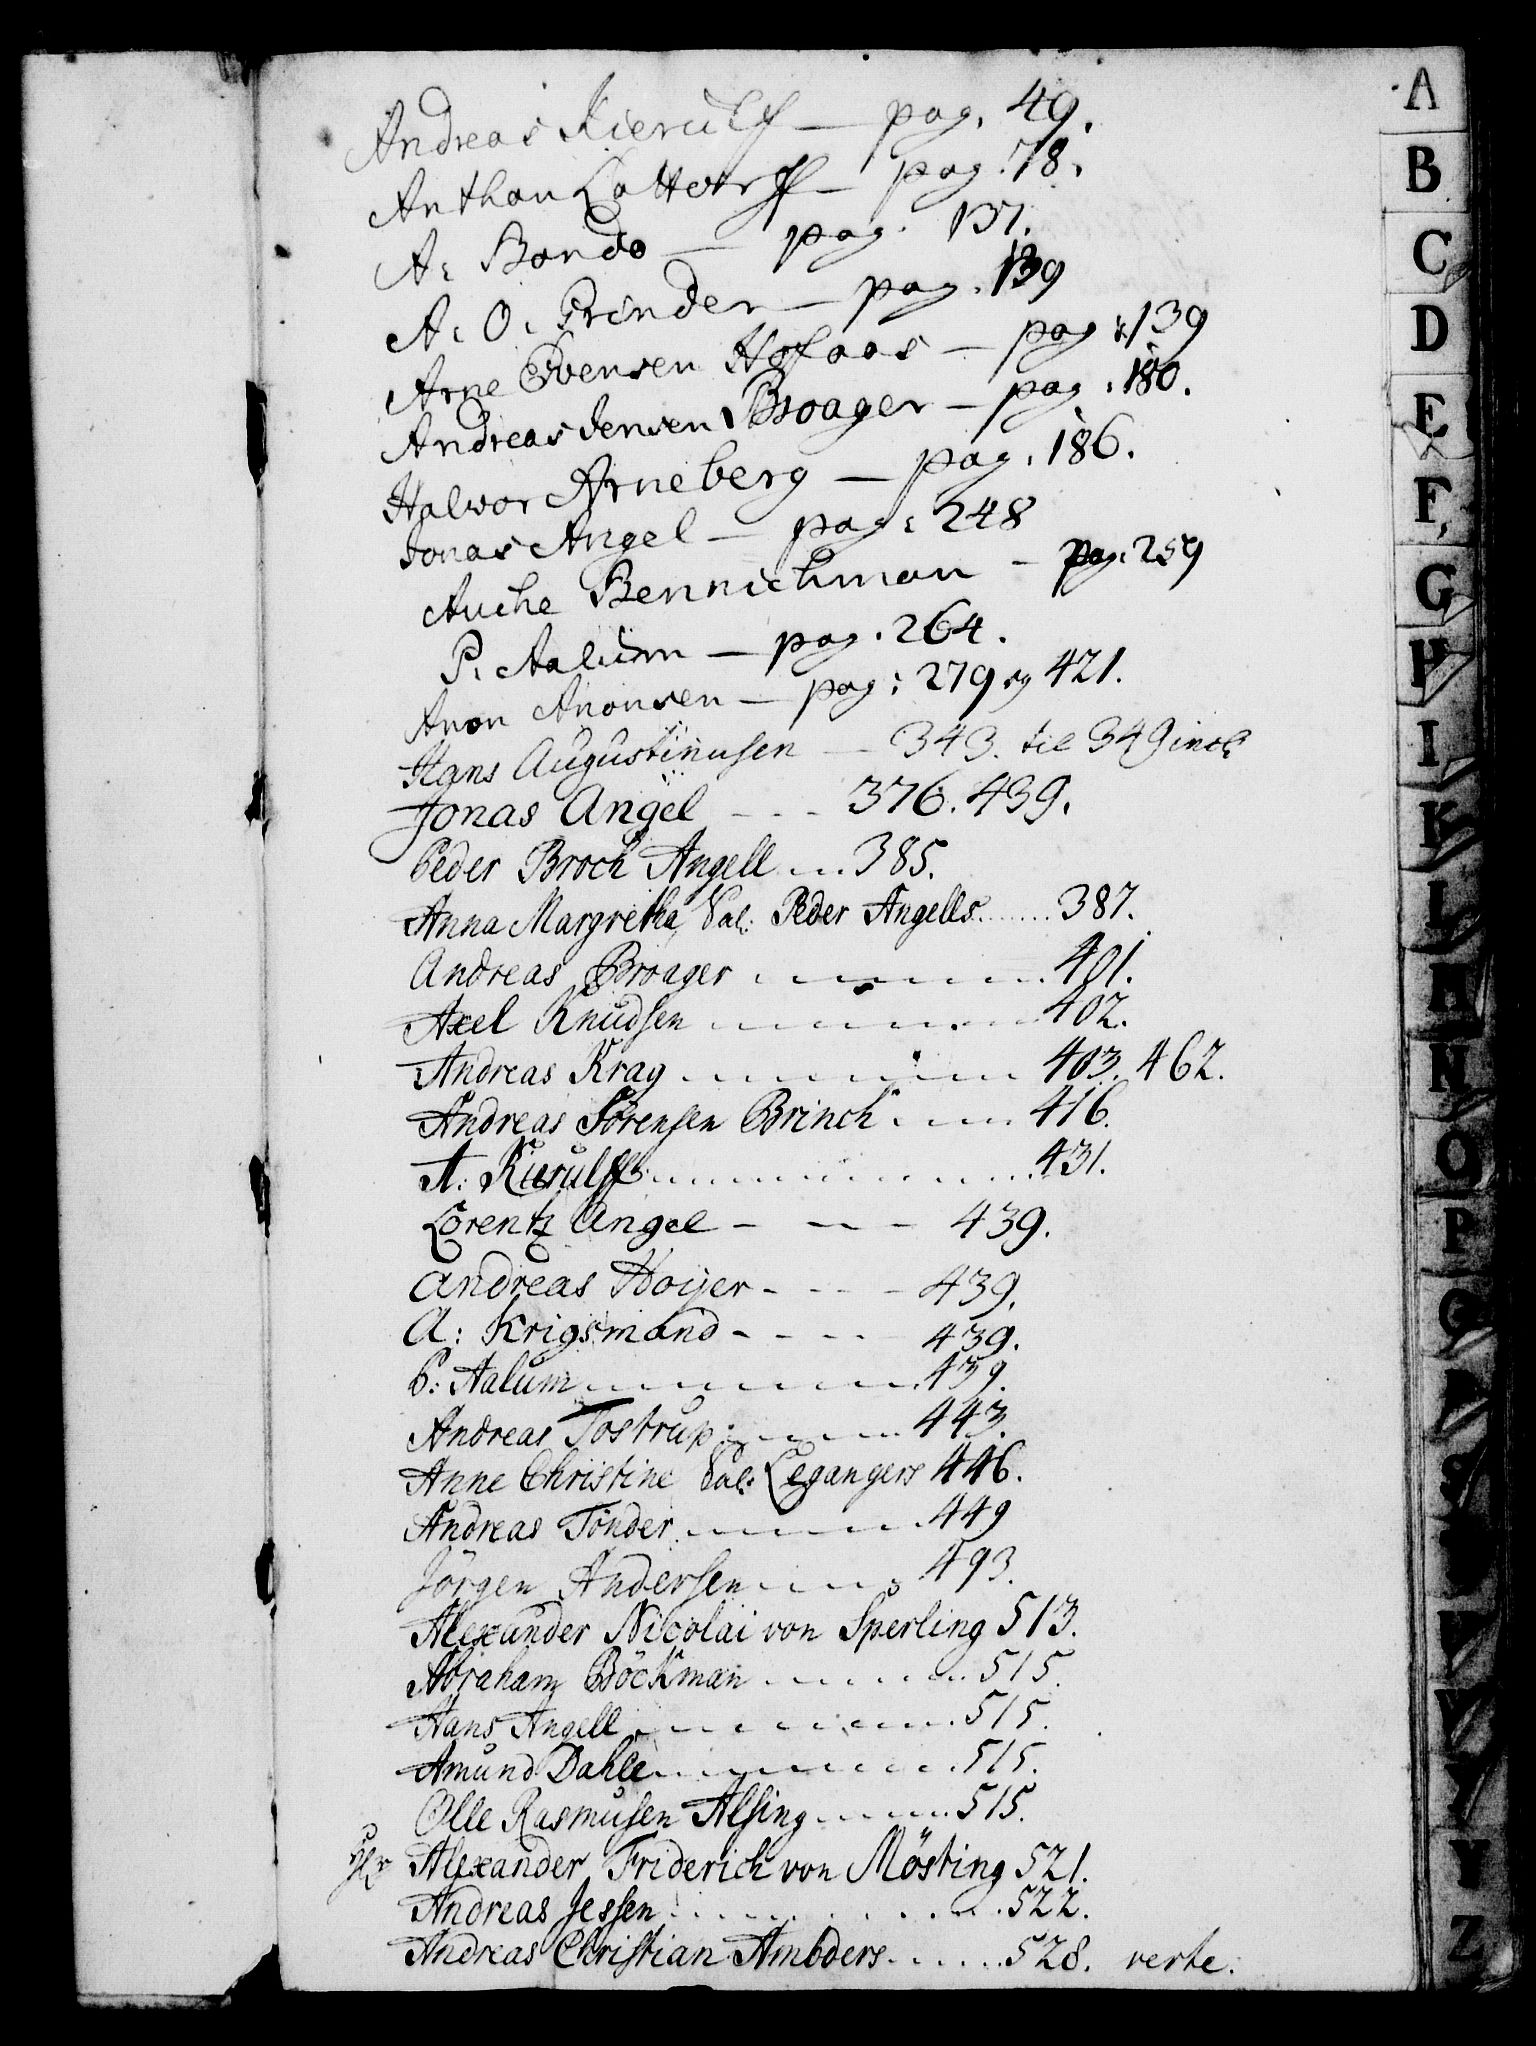 Andreas Kierulff — pag. 49.
Anthon Cattvorff — pag. 78.
A: Bondo — pag. 137.
A: O: Prinder — pag. 139
Arne Evensen Hofaas — pag: 139
Andreas Jensen Broager — pag: 180.
Halvor Arneberg — pag. 186.
Jonas Angel — pag: 248
Auche Bennichman — pag: 259
P: Aalum — pag. 264.
Aron Aronsen — pag: 279 og 421.
Hans Augustinusen — 343. til 349 incl:
Jonas Angel - - - 376. 439.
Peder Broch Angell ... 385.
Anna Margretha, Sal: Peder Angells ...... 387.
Andreas Broager ......... 401.
Axel Knudsen ......... 402.
Andreas Krag ......... 403. 462.
Andreas Sörensen Brinch ..... 416.
A: Kierulff ............ 431.
Lorentz Angel - - - 439.
Andreas Hoijer - - - - 439.
A: Krigsmand - - - - 439.
P: Aalum ......... 439.
Andreas Tostrup ...... 443.
Anne Christine Sal: Legangers 446.
Andreas Tönder ....... 449
Jörgen Andersen ..... 493.
Alexander Nicolai von Sperling 513.
Abraham Böckman ....... 515.
Hans Angell ......... 515.
Amund Dahle ......... 515.
Olle Rasmusen Alsing ..... 515.
Hr Alexander Friderich von Mösting 521.
Andreas Jessen .......... 522.
Andreas Christian Ambders ...... 528. verte.
A
B
C
D
E
F
G
H
I
K
L
M
N
O
P
Q
R
S
V
Y
Z